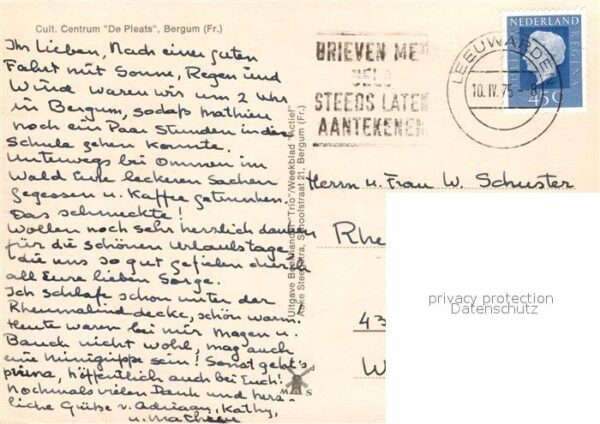 Cult. Centrum "De Pleats", Bergum (Fr.)
Ihr Lieben, Nach einer guten
Fahrt mit Sonne, Regen und
Wind waren wir um 2 Uhr
in Bergum, sodaß Mathieu
noch ein Paar Stunden in die
Schule gehen konnte.
Unterwegs bei Ommen im
Wald Eure leckeren Sachen
gegessen u. Kaffee getrunken.
Das schmeckte!
Wollen noch sehr herzlich danken
für die schönen Urlaubstage
die uns so gut gefielen durch
all Eure lieben Sorge.
Ich schlafe schon unter der
Rheumalind decke, schön warm!
Heute waren bei mir Magen u.
Bauch nicht wohl, mag auch
eine minigrippe sein! Sonst geht's
prima, hoffentlich auch bei Euch!
Nochmals vielen Dank und herz-
liche Grüße v. Adriaan, Kathy,
u. Mathieu
Uitgave Boekhandel "Trio"/Weekblad "Actief"
Schoolstraat 21, Bergum (Fr.)
BRIEVEN MET
GELD
STEEDS LATEN
AANTEKENEN
LEEUWARDEN
10.IV.75 - 8
NEDERLAND
45C
Herrn u. Frau W. Schuster
Rhe
43
W
privacy protection
Datenschutz